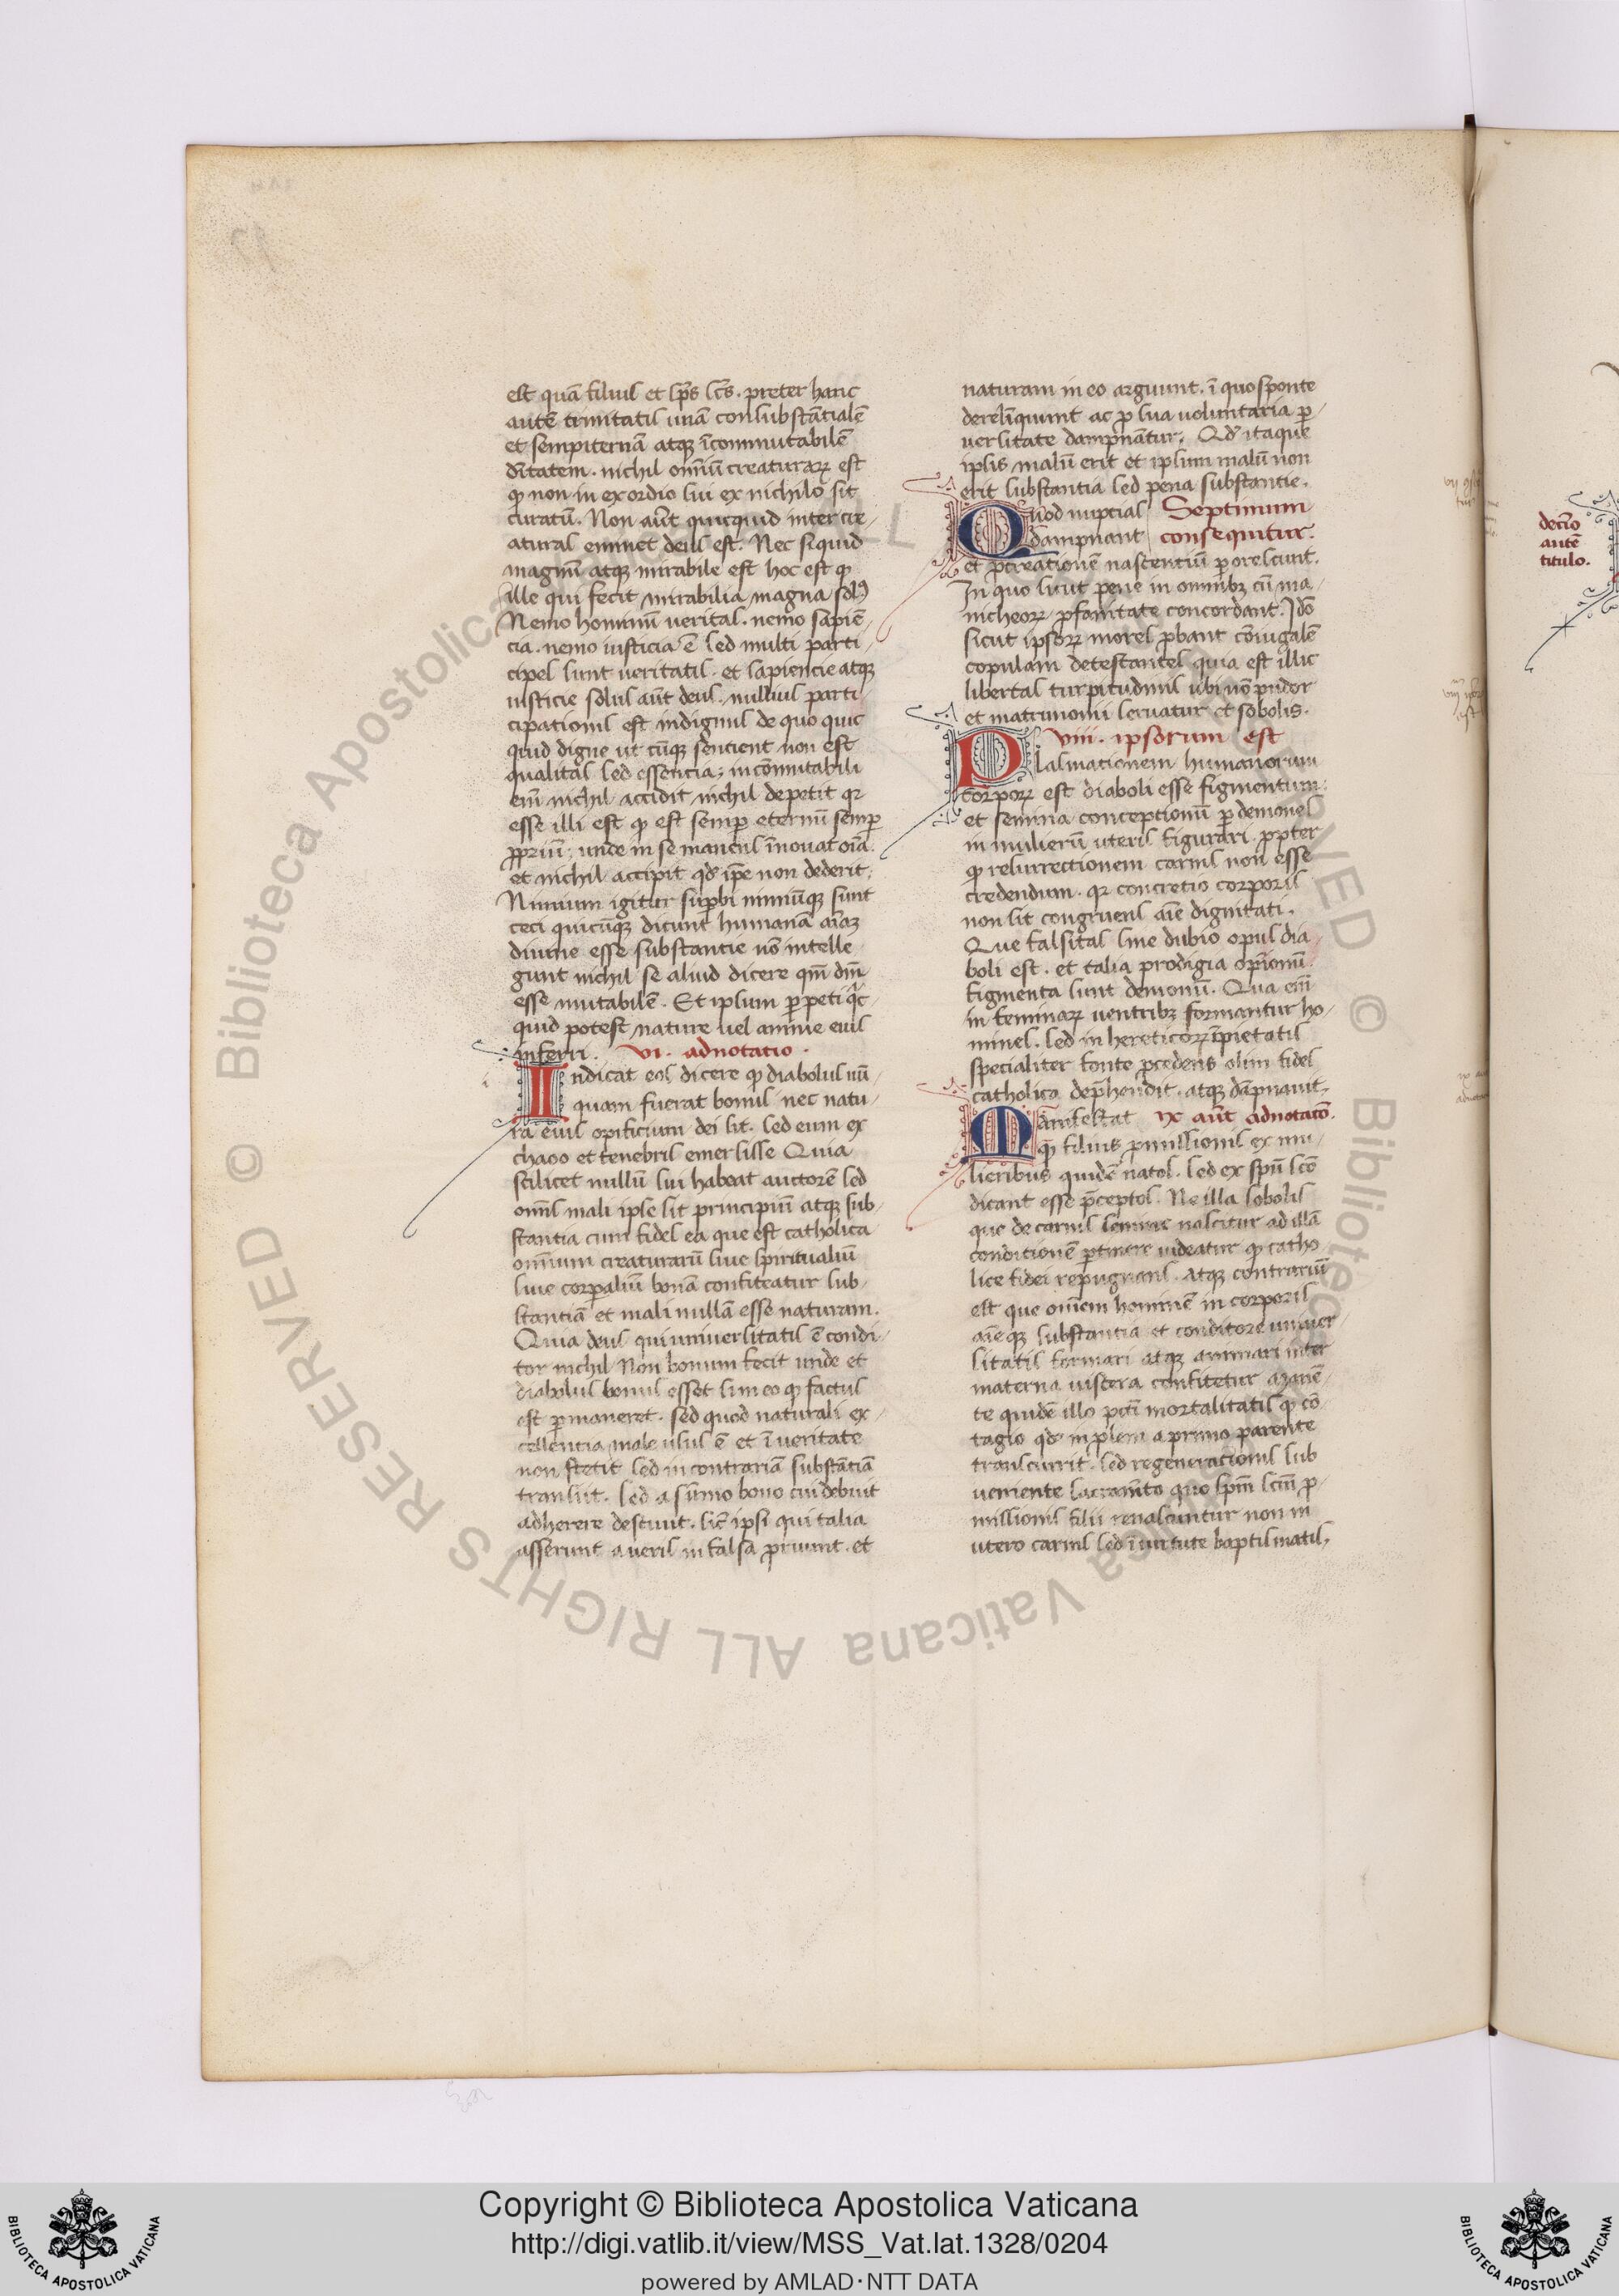 est quā filius et sp̄s sc̄s. preter hanc
autē trinitatis unā consubstātialē
et sempiternā atq̨ īcommutabilē
dītatem. nichil omniū creaturaꝝ est
qꝫ non in exordio sui ex nichilo sit
curatū. Non aūt quicquid inter cre/
aturas eminet deus est. Nec siquid
magnū atqꝫ mirabile est hoc est qꝫ
ille qui fecit mirabilia magna solꝰ
Nemo hominū veritas. nemo sapiē/
cia. nemo iusticia ē sed multi parti/
cipes sunt veritatis. et sapiencie atqꝫ
iusticie solus aūt deus. nullius parti/
cipationis est indignus de quo quic
quid digne ut cūqꝫ sentient non est
qualitas sed essencia; incōmutabili
eiū nichil accidit nichil depetit qꝛ
esse illi est qꝫ est semꝑ eternū semꝑ
ꝓpriū; unde in se manens īnouat oīa.
et nichil accipit qd̄ ip̄e non dederit;
Nimium igitur suꝑbi nimiūqꝫ sunt
ceci quicūqꝫ dicunt humanā aīaꝫ
diuine esse substantie nō intelle
gunt nichil se aliud dicere qm̄ dm̄
esse mutabilē. Et ipsum ꝑpeti q̄c/
quid potest nature uel anime eius
inferri. vi. adnotatio.
Indicat eos dicere qꝫ diabolus nū/
quam fuerat bonus nec natu/
ra eius opificium dei sit. sed eum ex
chaoo et tenebris emersisse Quia
scilicet nullū sui habeat auctorē sed
omīs mali ipse sit principiū atqꝫ sub/
stantia cum fides ea que est catholica
omnium creaturarū siue spiritualiū
siue corꝑaliū bonā confiteatur sub/
stantiā et mali nullā esse naturam.
Quia deus qui uniuersitatis ē condi/
tor nichil Non bonum fecit unde et
diabolus bonus esset si in eo qꝫ factus
est ꝑmaneret. sed quod naturali ex/
cellencia male usus ē et ī veritate
non stetit sed in contrariā substātiā
transiit. sed a sūmo bono cui debuit
adherere desciuit. sic̄ ipsi qui talia
asserunt a veris in falsa ꝓruunt. et
naturam in eo arguunt. ī quo sponte
derelīquunt ac ꝓ sua uoluntaria ꝑ/
uersitate dampnātur. Qd̄ itaque
ipsis malū erit et ipsum malū non
erit substantia sed pena substantie.
Quod nuptias Septimum
dampnant consequitur.
et ꝓcreationē nascentiū ꝑorescunt.
In quo sicut pene in omnibꝫ cū ma/
nicheoꝝ ꝓfanitate concordant. Idō
sicut ipsoꝝ mores ꝓbant cōiugalē
copulam detestantes quia est illic
libertas turpitudinis ubi nō pudor
et matrimonii seruatur et sobolis.
viii. ipsorum est
Plasmationem humanorum
corporꝝ est diaboli esse figmentum.
et semina conceptionū ꝑ demones
in mulierū uteris figurari. ꝓpter
qꝫ resurrectionem carnis non esse
credendum. qꝛ concretio corporis
non sit congruens aīe dignitati.
Que falsitas sine dubio opus dia/
boli est. et talia prodigia opīionū.
figmenta sunt demonū. Qua eiū
in feminaꝝ uentribꝫ formantur ho/
mines. sed in hereticoꝝ īpietatis
specialiter fonte ꝓcedens olim fides
catholica dep̄hendit. atqꝫ dāpnauit.
Manifestat ix aūt adnotatō.
qꝫ filius ꝓmissionis ex mu/
lieribus quidē natos. sed ex spū scō
dicant esse p̄ceptos. Ne illa sobolis
que de carnis semine nascitur ad illā
conditionē ꝑtinere uideatur qꝫ catho
lice fidei repugnans. Atqꝫ contrariū
est que omem hominē in corporis
aīe qꝫ substantia et conditore uniuer/
sitatis formari atqꝫ animari inter
materna uiscera confitetur a manē/
te quidē illo pctī mortalitatis qꝫ cō
tagio qd̄ in ꝓlem a primo parente
transcurrit. sed regenerationis sub
ueniente sacramēto quo spm̄ scm̄ ꝓ/
missionis filii renascuntur non in
utero carnis sed ī uirtute baptismatis.
decīo
autē
titulo.
Copyright © Biblioteca Apostolica Vaticana
http://digi.vatlib.it/view/MSS_Vat.lat.1328/0204
powered by AMLAD·NTT DATA
BIBLIOTECA APOSTOLICA VATICANA
BIBLIOTECA APOSTOLICA VATICANA
© Biblioteca Apostolica Vaticana ALL RIGHTS RESERVED